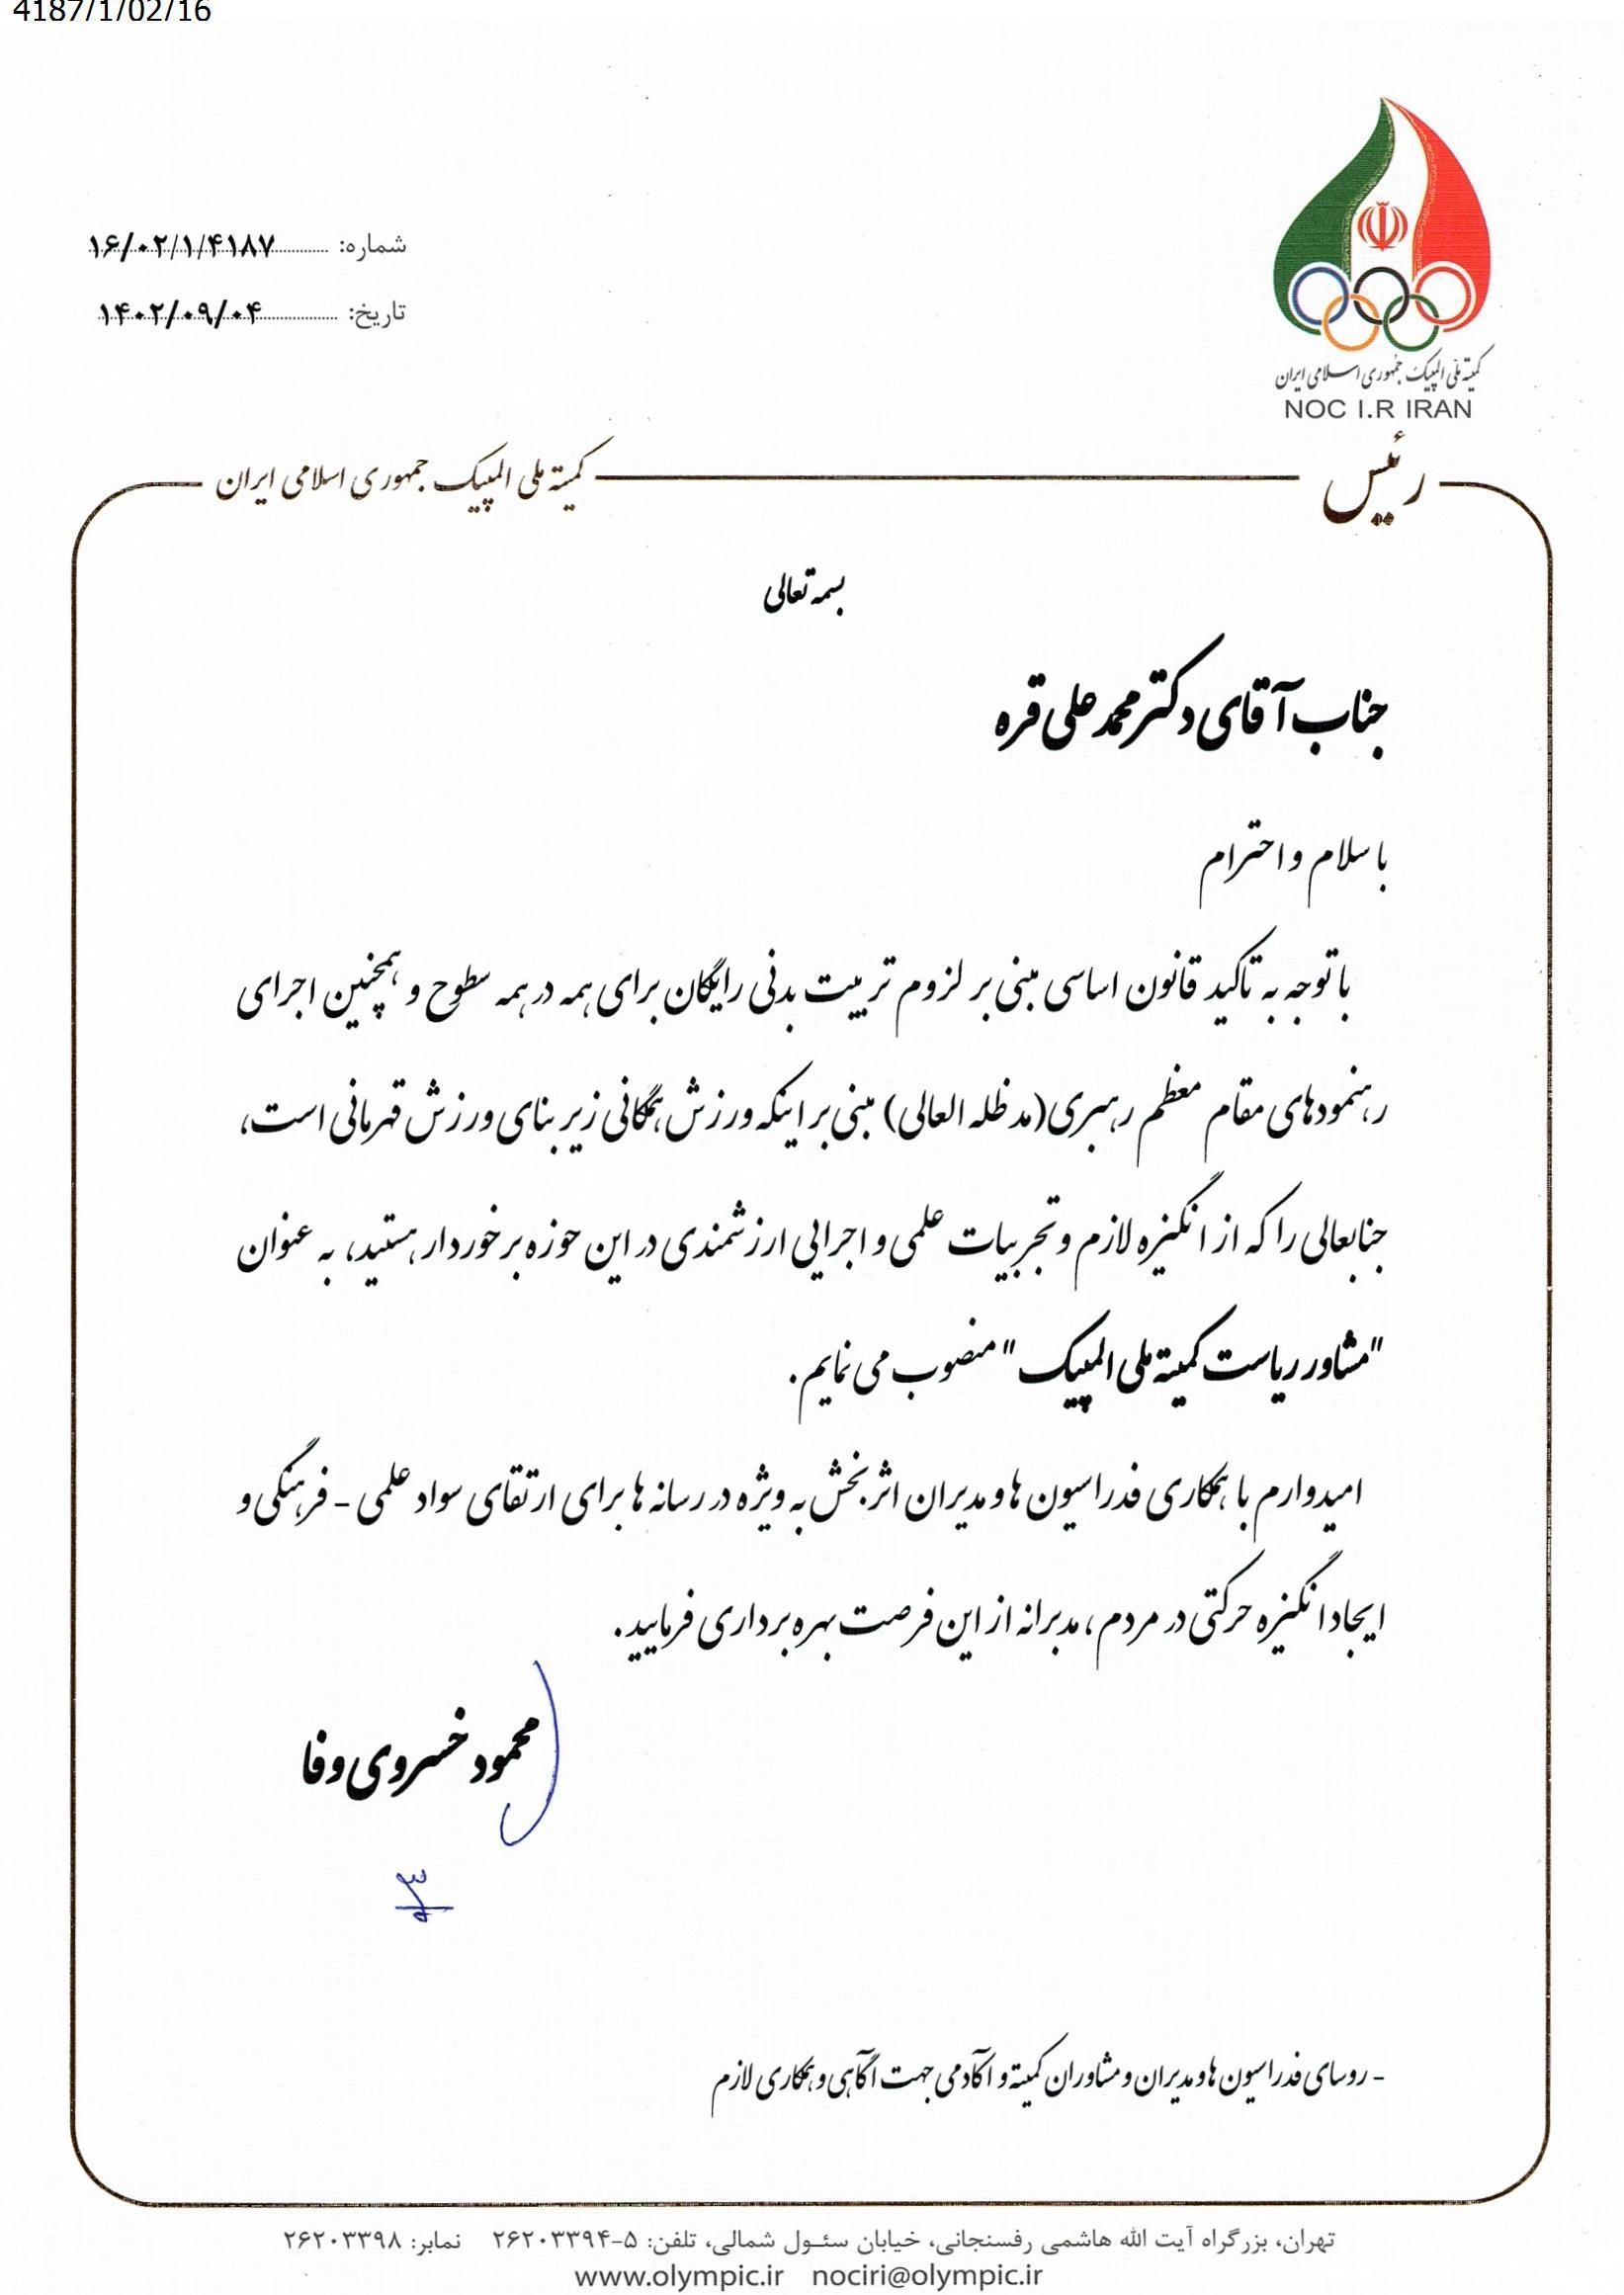 4187/1/02/16
کمیته ملی المپیک جمهوری اسلامی ایران
NOC I.R IRAN
شماره: ۱۶/۰۲/۱/۴۱۸۷
تاریخ: ۱۴۰۲/۰۹/۰۴
رئیس
کمیته ملی المپیک جمهوری اسلامی ایران
بسمه تعالی
جناب آقای دکتر محمد علی قره
با سلام و احترام
با توجه به تاکید قانون اساسی مبنی بر لزوم تربیت بدنی رایگان برای همه در همه سطوح و همچنین اجرای
رهنمودهای مقام معظم رهبری(مدظله العالی) مبنی بر اینکه ورزش همگانی زیر بنای ورزش قهرمانی است،
جنابعالی را که از انگیزه لازم و تجربیات علمی و اجرایی ارزشمندی در این حوزه برخوردار هستید، به عنوان
"مشاور ریاست کمیته ملی المپیک" منصوب می نمایم.
امیدوارم با همکاری فدراسیون ها و مدیران اثربخش به ویژه در رسانه ها برای ارتقای سواد علمی - فرهنگی و
ایجاد انگیزه حرکتی در مردم، مدبرانه از این فرصت بهره برداری فرمایید.
محمود خسروی وفا
- روسای فدراسیون ها و مدیران و مشاوران کمیته و آکادمی جهت آگاهی و همکاری لازم
تهران، بزرگراه آیت الله هاشمی رفسنجانی، خیابان سئول شمالی، تلفن: ۵-۲۶۲۰۳۳۹۴ نمابر: ۲۶۲۰۳۳۹۸
www.olympic.ir nociri@olympic.ir